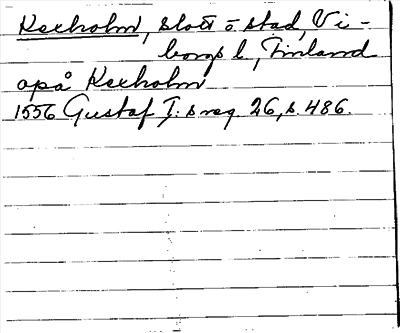 Kexholm, slott o stad, Vi-
borgs l, Finland
opå Kexholm
1556 Gustaf I:s reg. 26, s. 486.